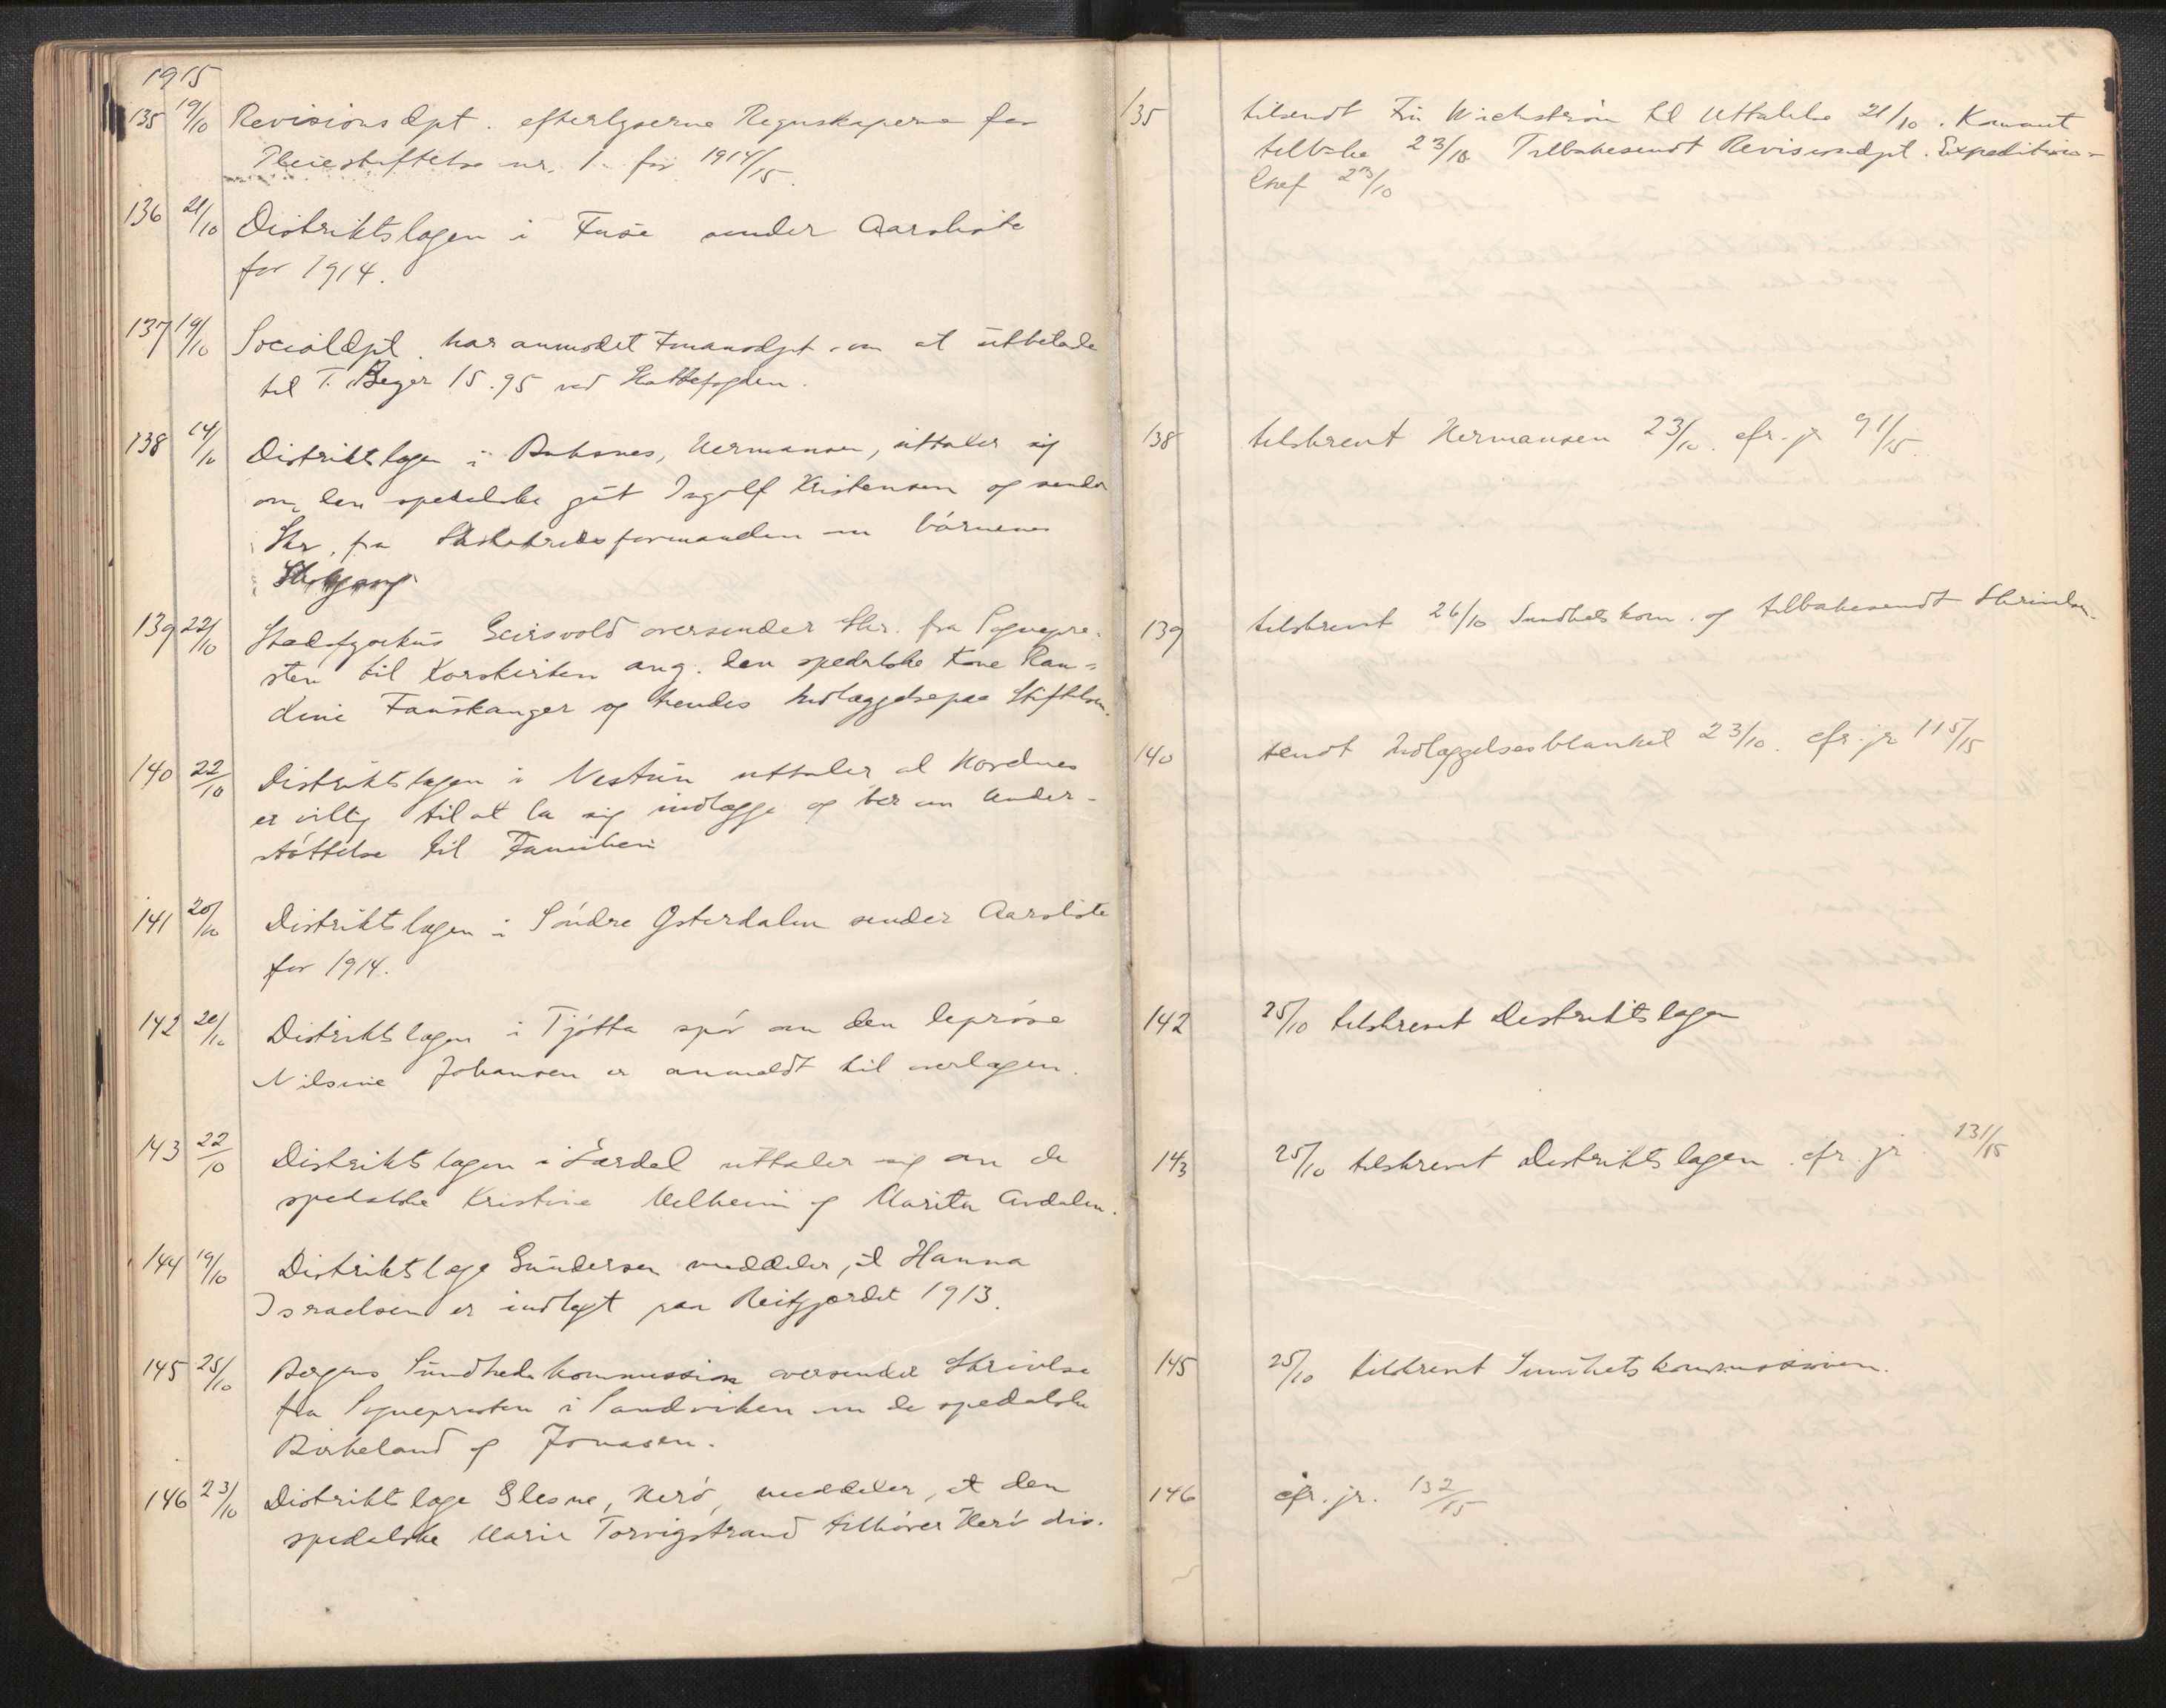 1915
135 19/10 Revisionsdpt. efterlyserne Regnskaperne for
Pleiestiftelse nr. 1 for 1914/15.
136 21/10 Distriktslægen i Fuse sender Aarsliste
for 1914.
137 19/10 Socialdpt. har anmodet Finansdpt. om at utbetale
til T. Beyer 15.95 ved Skattefogden.
138 14/10 Distriktslægen i Buksnes, Hermansen, uttaler sig
om den spedalske gut Ingolf Kristensen og sender
Skr. fra Skolekredsformanden om børnenes
Skolegang
139 22/10 Stadsfysikus Geirsvold oversender Skr. fra Sognepre-
sten til Korskirken ang. den spedalske Kone Ran-
dine Fauskanger og hendes Indlæggelse paa Stiftelsen.
140 22/10 Distriktslægen i Nestun uttaler at Hordnes
er villig til at la sig indlægge og ber om Under-
støttelse til Familien
141 20/10 Distriktslægen i Søndre Østerdalen sender Aarsliste
for 1914.
142 20/10 Distriktslægen i Tjøtta spør om den leprøse
Nilsine Johansen er anmeldt til overlægen.
143 22/10 Distriktslægen i Lærdal uttaler sig om de
spedalske Kristine Melheim og Marita Avdalen.
144 19/10 Distriktslæge Gundersen meddeler, at Hanna
Israelsen er indlagt paa Reitgjærdet 1913.
145 25/10 Bergens Sundhedskommission oversender Skrivelse
fra Sognepresten i Sandviken om de spedalske
Birkeland og Jonasen.
146 23/10 Distriktslæge Glesne, Herø, meddeler, at den
spedalske Marie Torvigstrand tilhører Herø dis.
135 tilsendt Frk Wichstrøm til Uttalelse 21/10. Kommet
tilbake 23/10 Tilbakesendt Revisionsdpt. Expeditions-
Chef 23/10
138 tilskrevet Hermansen 23/10. cfr. jr 91/15.
139 tilskrevet 26/10 Sundhetskom. og tilbakesendt Skrivelsen.
140 sendt Indlæggelsesblanket 23/10. cfr. jr 115/15
142 25/10 tilskrevet Distriktslægen
143 25/10 tilskrevet Distriktslægen. cfr. jr. 131/15
145 25/10 tilskrevet Sundhetskommissionen.
146 cfr. jr. 132/15